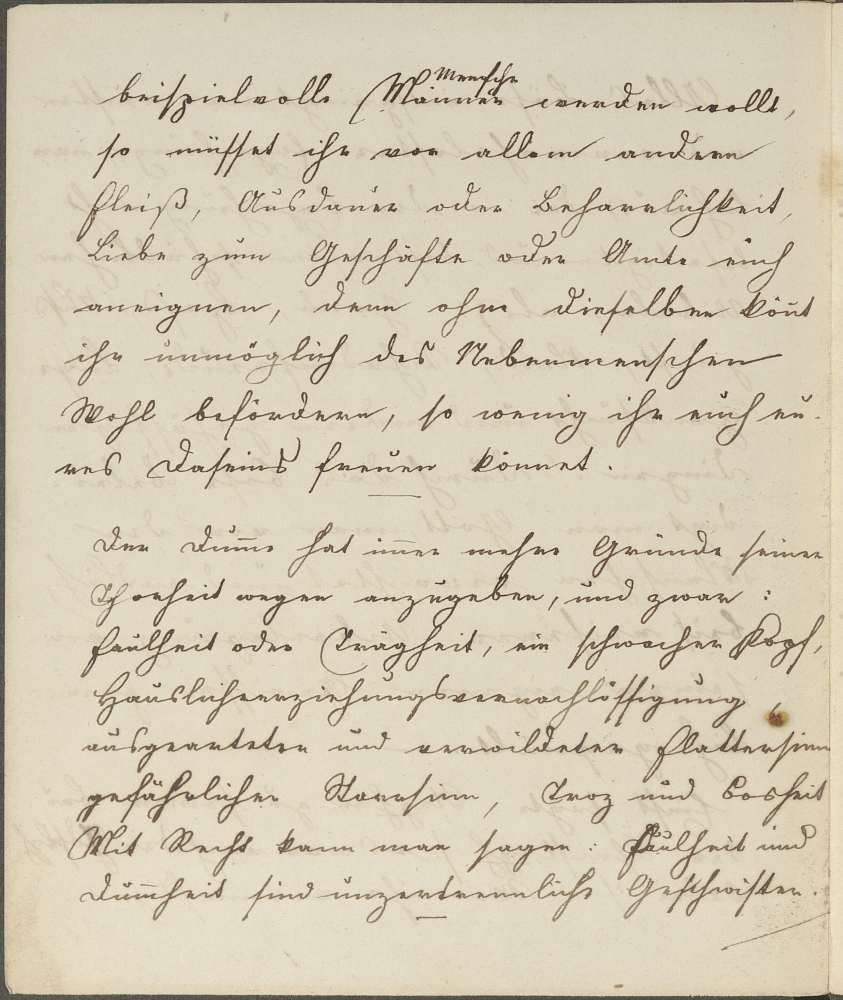 Mensche
beispielvolle Männer werden wollt,
so müsset ihr vor allem andern
Fleiß, Ausdauer oder Beharrlichkeit,
Liebe zum Geschäfte oder Amte euch
aneignen, denn ohne dieselben könt
ihr unmöglich des Nebenmenschen
Wohl befördern, so wenig ihr euch eu-
res Daseins freuen könnet.
Der Dumme hat immer mehre Gründe seiner
Thorheit wegen anzugeben, und zwar:
Faulheit oder Trägheit, ein schwacher Kopf,
Hauslicheerziehungsvernachlässigung,
ausgearteter und verwildeter Flattersinn
gefährlicher Starrsinn, Troz und Bosheit
Mit Recht kann man sagen: Faulheit und
Dummheit sind unzertrennliche Geschwister.